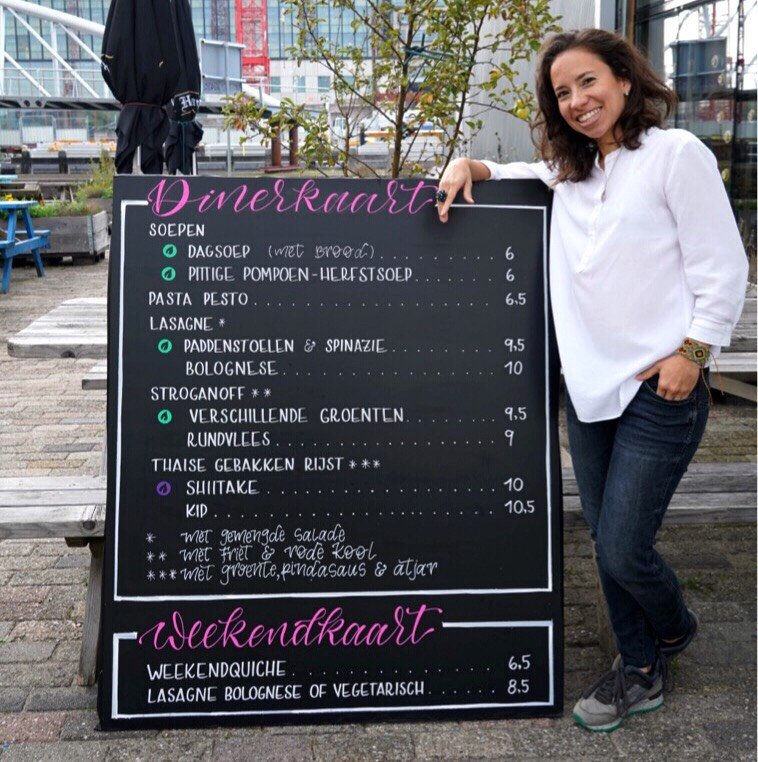 Dinerkaart
SOEPEN
DAGSOEP (met BROOD) . . . . . . . . . . . . . 6
PITTIGE POMPOEN-HERFSTSOEP . . . . . . . . 6
PASTA PESTO . . . . . . . . . . . . . . . . . . . . 6,5
LASAGNE *
PADDENSTOELEN & SPINAZIE . . . . . . . . . . 9,5
BOLOGNESE . . . . . . . . . . . . . . . . . . . 10
STROGANOFF **
VERSCHILLENDE GROENTEN . . . . . . . . . 9,5
RUNDVLEES . . . . . . . . . . . . . . . . . . . 9
THAISE GEBAKKEN RIJST ***
SHIITAKE . . . . . . . . . . . . . . . . . . . . 10
KIP . . . . . . . . . . . . . . . . . . . . . . . 10,5
* met gemengde salade
** met friet & rode kool
*** met groente, pindasaus & atjar
Weekendkaart
WEEKENDQUICHE . . . . . . . . . . . . . . . . . 6,5
LASAGNE BOLOGNESE OF VEGETARISCH . . . . . . 8,5